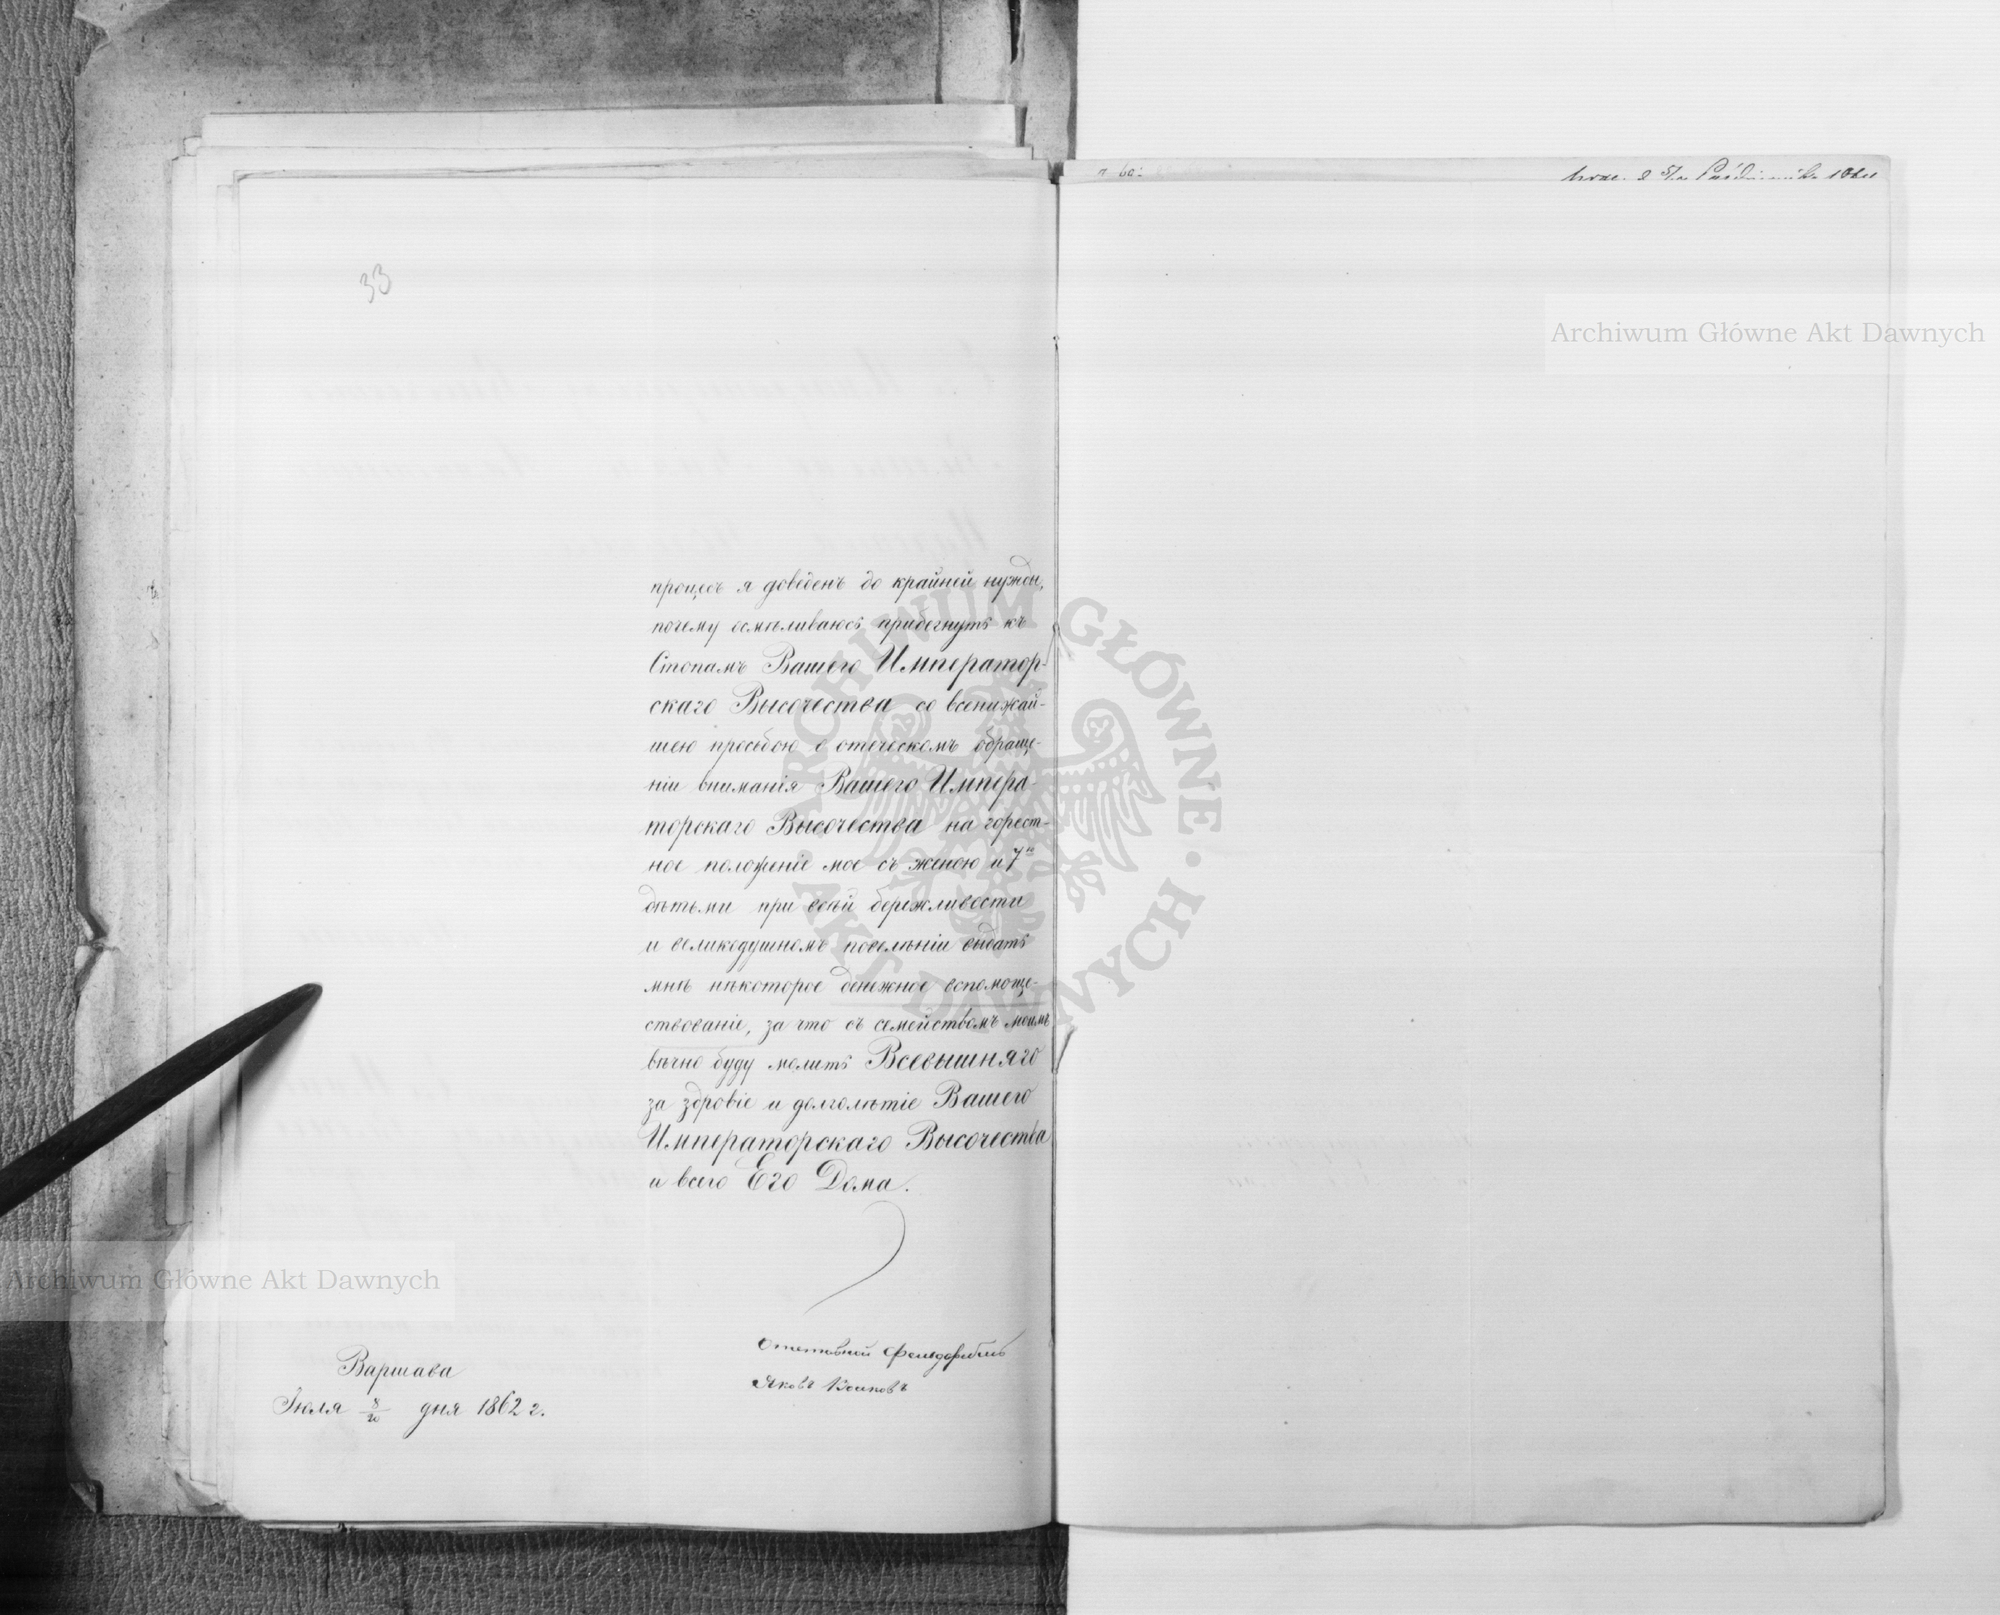 33
процесъ я доведенъ до крайней нужды,
почему осмѣливаюсь прибегнуть къ
Стопамъ Вашего Император-
скаго Высочества со всенижай-
шею просьбою о отеческомъ обраще-
ніи вниманія Вашего Импера-
торскаго Высочества на горест-
ное положеніе мое съ женою и 7ю
дѣтьми при всей бережливости
и великодушномъ повелѣніи выдать
мнѣ нѣкоторое денежное вспомоще-
ствованіе, за что съ семействомъ моимъ
вѣчно буду молить Всевышняго
за здоровіе и долголѣтіе Вашего
Императорскаго Высочества
и всего Его Дома.
отставной фельдфебель
Яковъ
Варшава
Іюля 8/20 дня 1862 г.
Archiwum Główne Akt Dawnych
Archiwum Główne Akt Dawnych
ARCHIWUM GŁÓWNE
AKT DAWNYCH